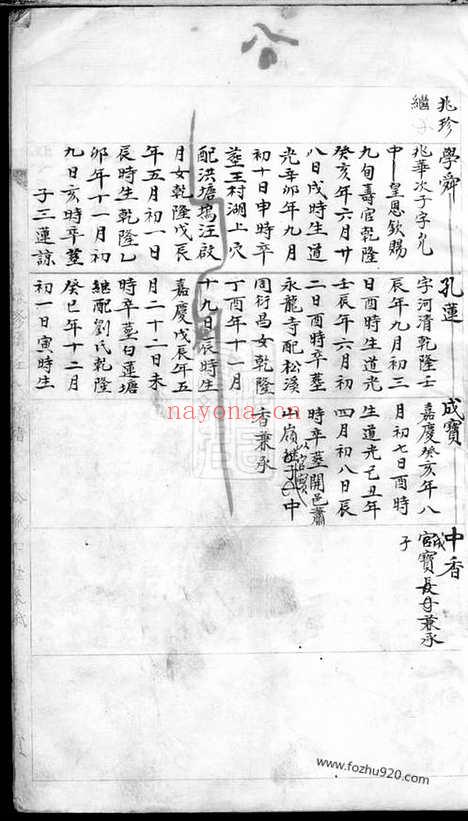 公
兆珍
繼子
學舜
兆華次子字允
中
皇恩欽賜
九旬壽官乾隆
癸亥年六月廿
八日戌時生道
光辛卯年九月
初十日申時卒
塟王村湖上穴
配洪塘塢汪啟
月女乾隆戊辰
年五月初一日
辰時生乾隆乙
卯年十一月初
九日亥時卒塟
子三蓮諒
孔蓮
字河清乾隆壬
辰年九月初三
日酉時生道光
壬辰年六月初
二日酉時卒塟
永龍寺配松溪
周衍昌女乾隆
丁酉年十一月
十九日辰時生
嘉慶戊辰年五
月二十二日未
時卒塟白蓮塘
繼配劉氏乾隆
癸巳年十二月
初一日寅時生
成寶
嘉慶癸亥年八
月初七日酉時
生道光己丑年
四月初八日辰
時卒塟開邑蕭
山嶺
繼子中
香兼承
中香
官寶長子兼承
子
nayona.cn
www.fozhu920.com